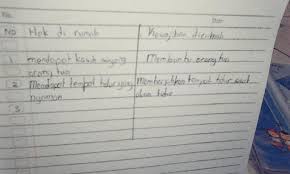 No.
Date
No Hak di rumah Kewajiban dirumah
1 mendapat kasih sayang Membantu orang tua
orang tua
2 Mendapat tempat tidur yang Membersihkan tempat tidur saat
nyaman akan tidur
3